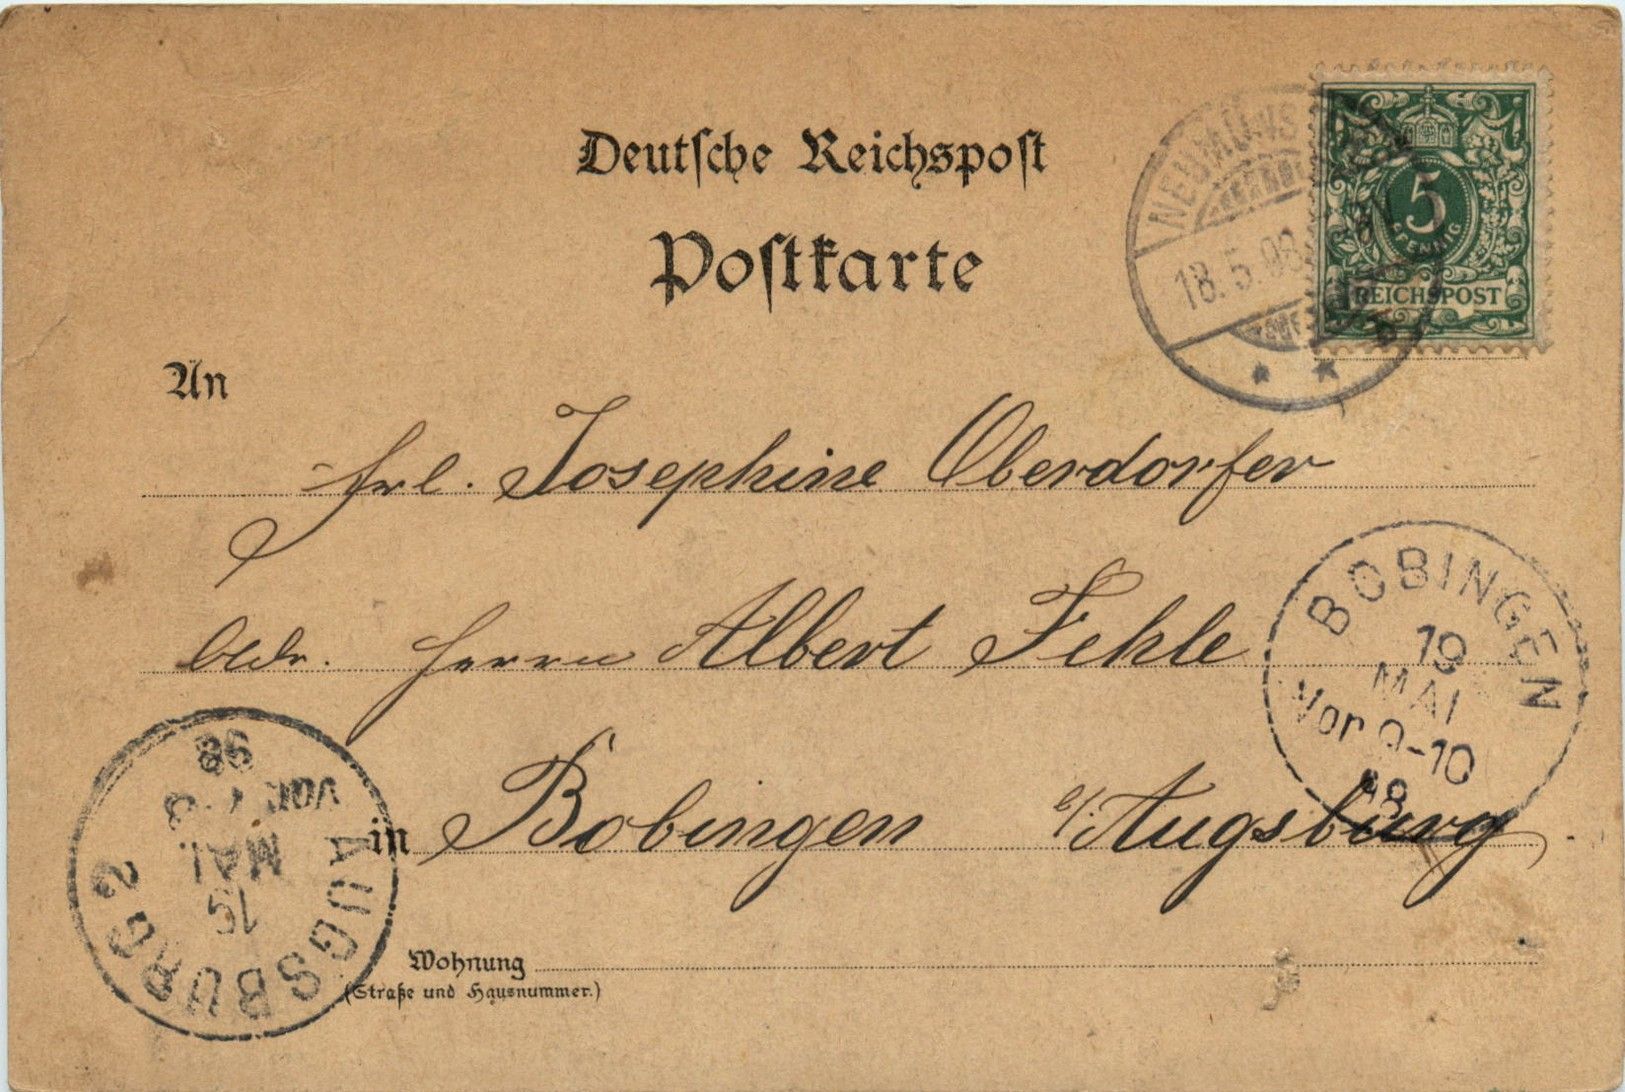 Deutsche Reichspost
Postkarte
NEUMÜNS
18.5.98
5
PFENNIG
REICHSPOST
An
Frl. Josephine Oberdorfer
Herrn Albert Fehle
in Bobingen b/ Augsburg
BOBINGEN
19
MAI
Vor 9-10
98
AUGSBURG 2
MAI
VOR
98
Wohnung
(Straße und Hausnummer.)